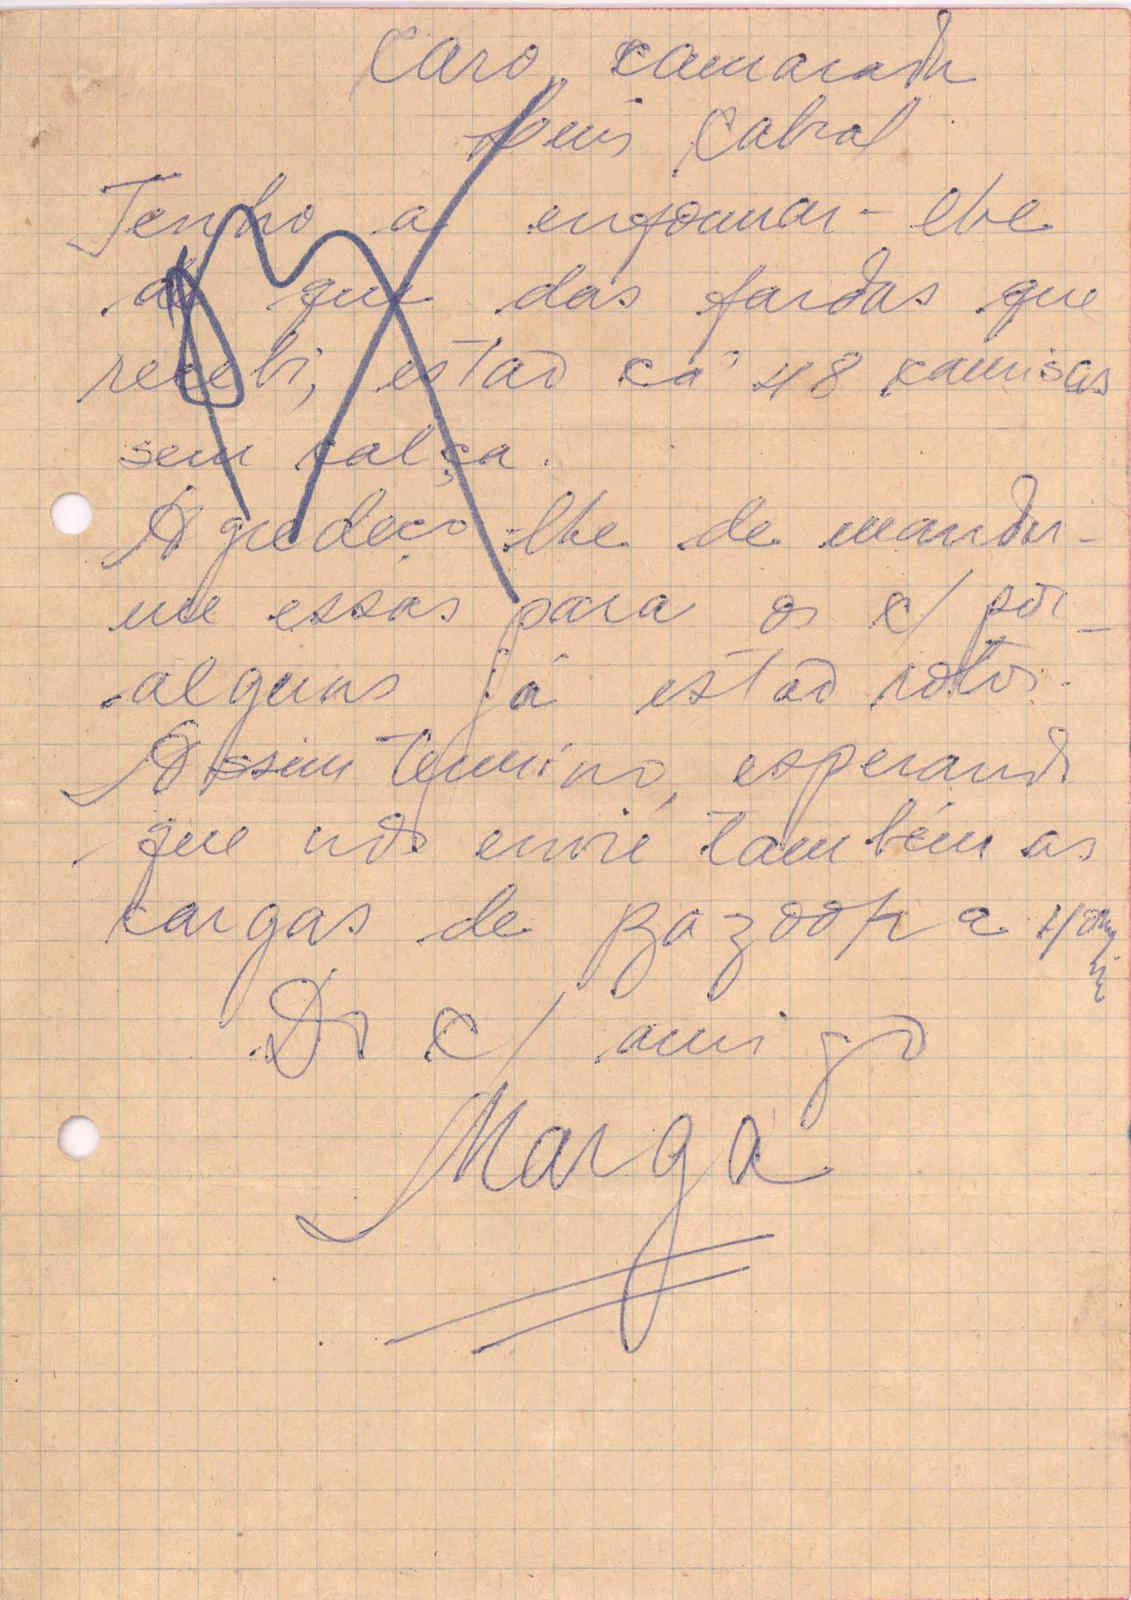 Caro camarada
Luis Cabral
Tenho a enformar-lhe
de que das fardas que
recebi, estão cá 48 camisas
sem calça.
Agredeço-lhe de mandar-
me essas para os c/ por
alguns já estão rotos.
Assim termino, esperando
que nos envie também as
cargas de Bazooka
Do c/ amigo
Marga